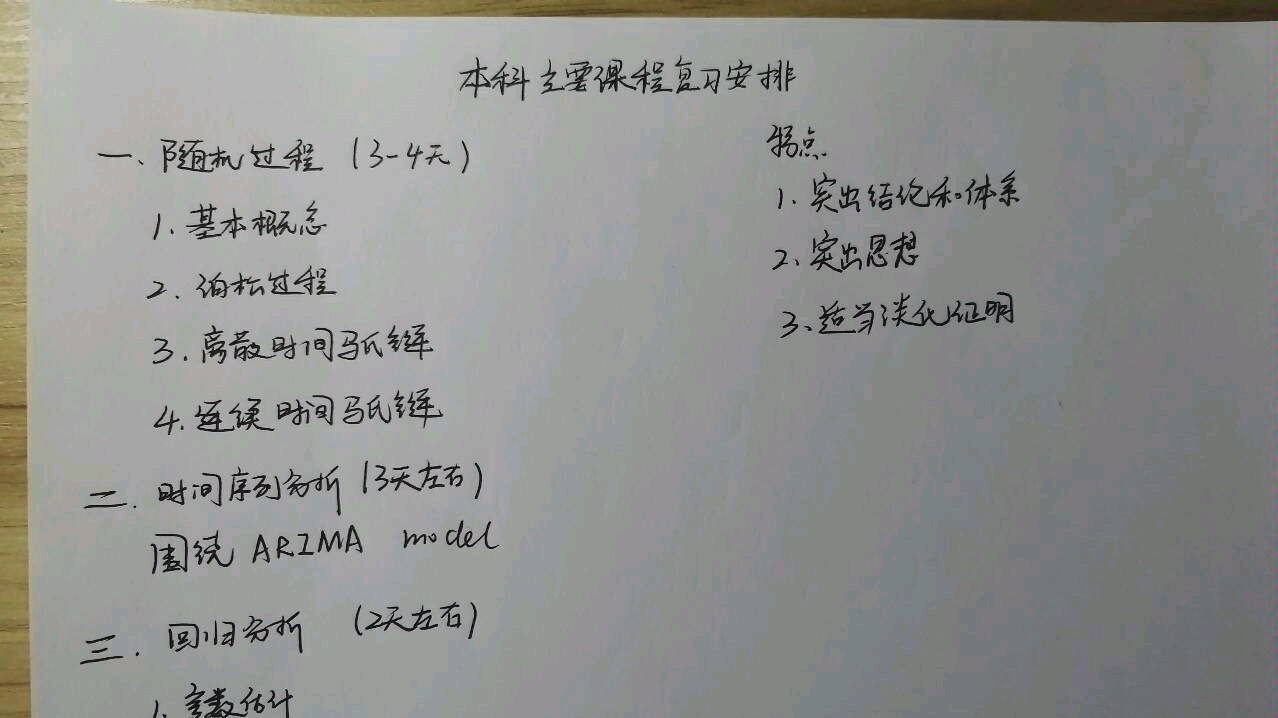 本科主要课程复习安排
一、随机过程 (3-4天)
1. 基本概念
2. 泊松过程
3. 离散时间马氏链
4. 连续时间马氏链
二. 时间序列分析 (3天左右)
围绕 ARIMA model
三. 回归分析 (2天左右)
1. 参数估计
特点
1. 突出结论和体系
2、突出思想
3、适当淡化证明